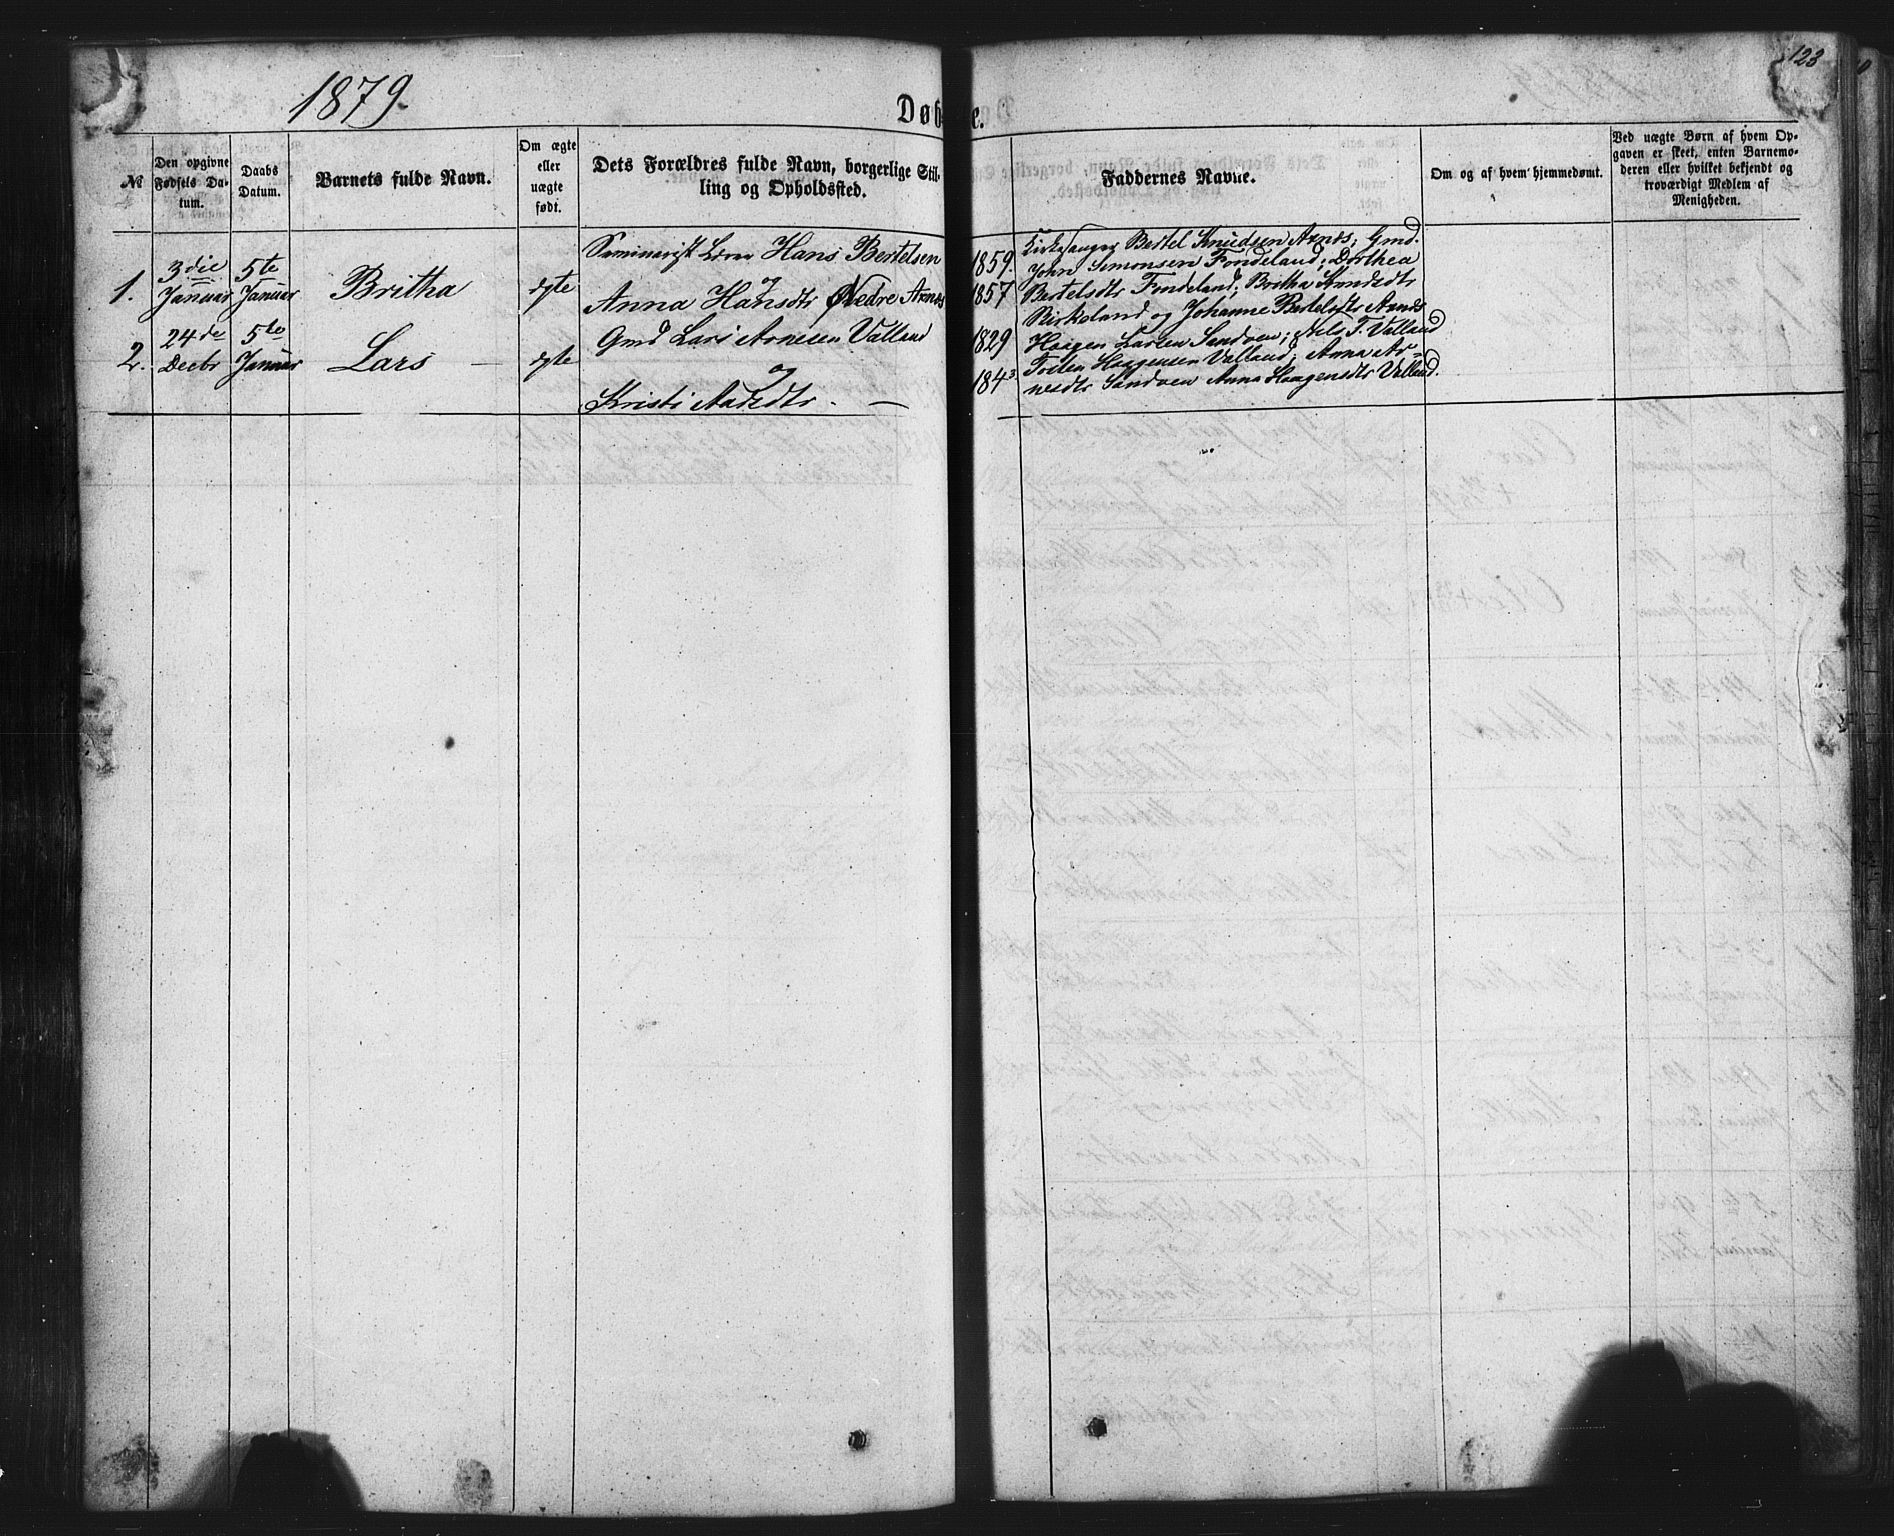 1879.
Døb
e.
123
№
Den opgivne Fødsels Da-tum.
Daabs Datum.
Barnets fulde Navn.
Om ægte eller uægte født.
Dets Forældres fulde Navn, borgerlige Stil-
ling og Opholdsfted.
Faddernes Navne.
Om og af hvem hjemmedømt.
Ved uægte Børn af hvem Op-
gaven er skeet, enten Barnemo-
deren eller hvilket bekjendt og
troværdigt Medlem af
Menigheden.
1.
3die Januar
5te Januar
Britha
ægte
Seminarist Lærer Hans Bertelsen
og
Anna Hansdtr Nedre Axnes
1859.
1857
Kirkesanger Bertel Knudsen Axnes; Gmd.
John Simonsen Fondeland; Dorthea
Bertelsdtr Fondeland; Britha
Birkeland og Johanne Bertelsdtr Axnes
2.
24de Decbr
5te Januar
Lars
ægte
Gmd Lars Arnesen Valland
og
Kristi
1829
1843
Haagen Larsen Sandven; Nels T. Valland
Haagensen Valland; Anna Ar-
nesdtr Sandven Anna Haagensdtr Valland.